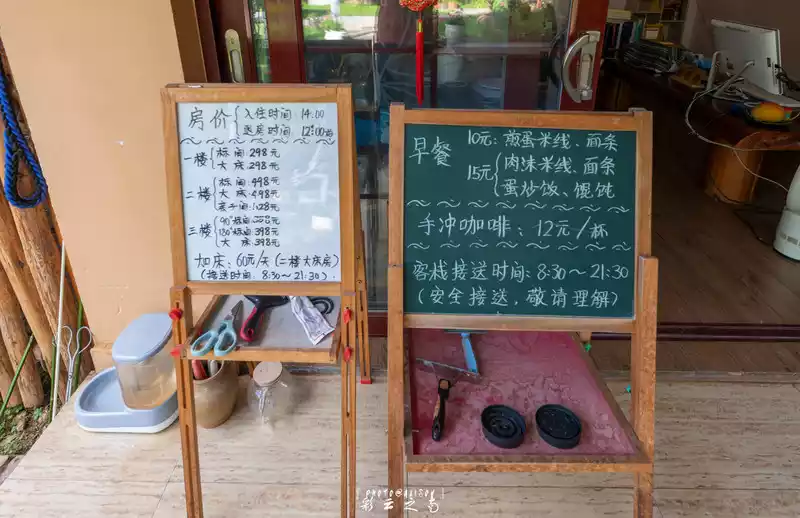 房价
入住时间：14:00
退房时间：12:00前
一楼
标间 298元
大床 298元
二楼
标间 498元
大床 498元
亲子间
三楼
90°标间
180°标间 398元
大床 398元
加床：60元/天（二楼大床房）
（接送时间：8:30～21:30）
早餐
10元：煎蛋米线、面条
15元
肉沫米线、面条
蛋炒饭、馄饨
手冲咖啡：12元/杯
客栈接送时间：8:30～21:30
（安全接送，敬请理解）
PHOTO@ALISON
彩云之南